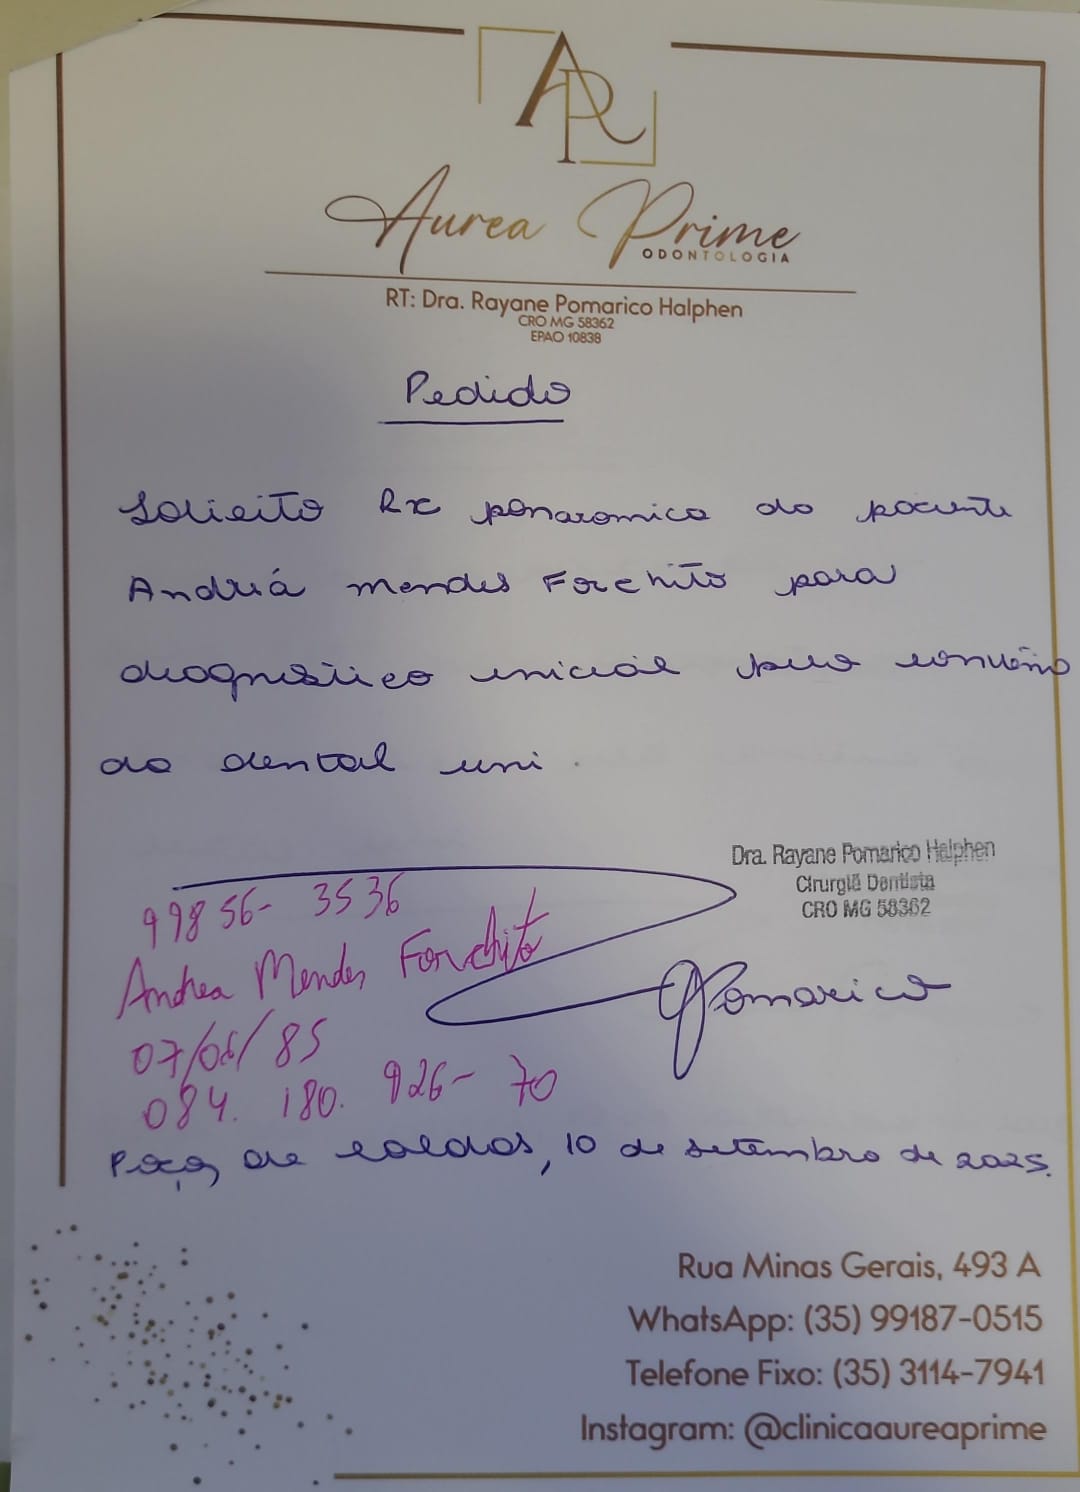 AP
Aurea Prime
ODONTOLOGIA
RT: Dra. Rayane Pomarico Halphen
CRO MG 58362
EPAO 10838
Pedido
Solicito Rx panaromica do paciente
Andréa Mendes Forchito para
diagnóstico inicial pelo convênio
da dental uni.
Dra. Rayane Pomarico Halphen
Cirurgiã Dentista
CRO MG 58362
99856-3536
Andrea Mendes Forchito
07/06/85
084.180.926-70
RPomarico
Poços de caldas, 10 de setembro de 2025.
Rua Minas Gerais, 493 A
WhatsApp: (35) 99187-0515
Telefone Fixo: (35) 3114-7941
Instagram: @clinicaaureaprime